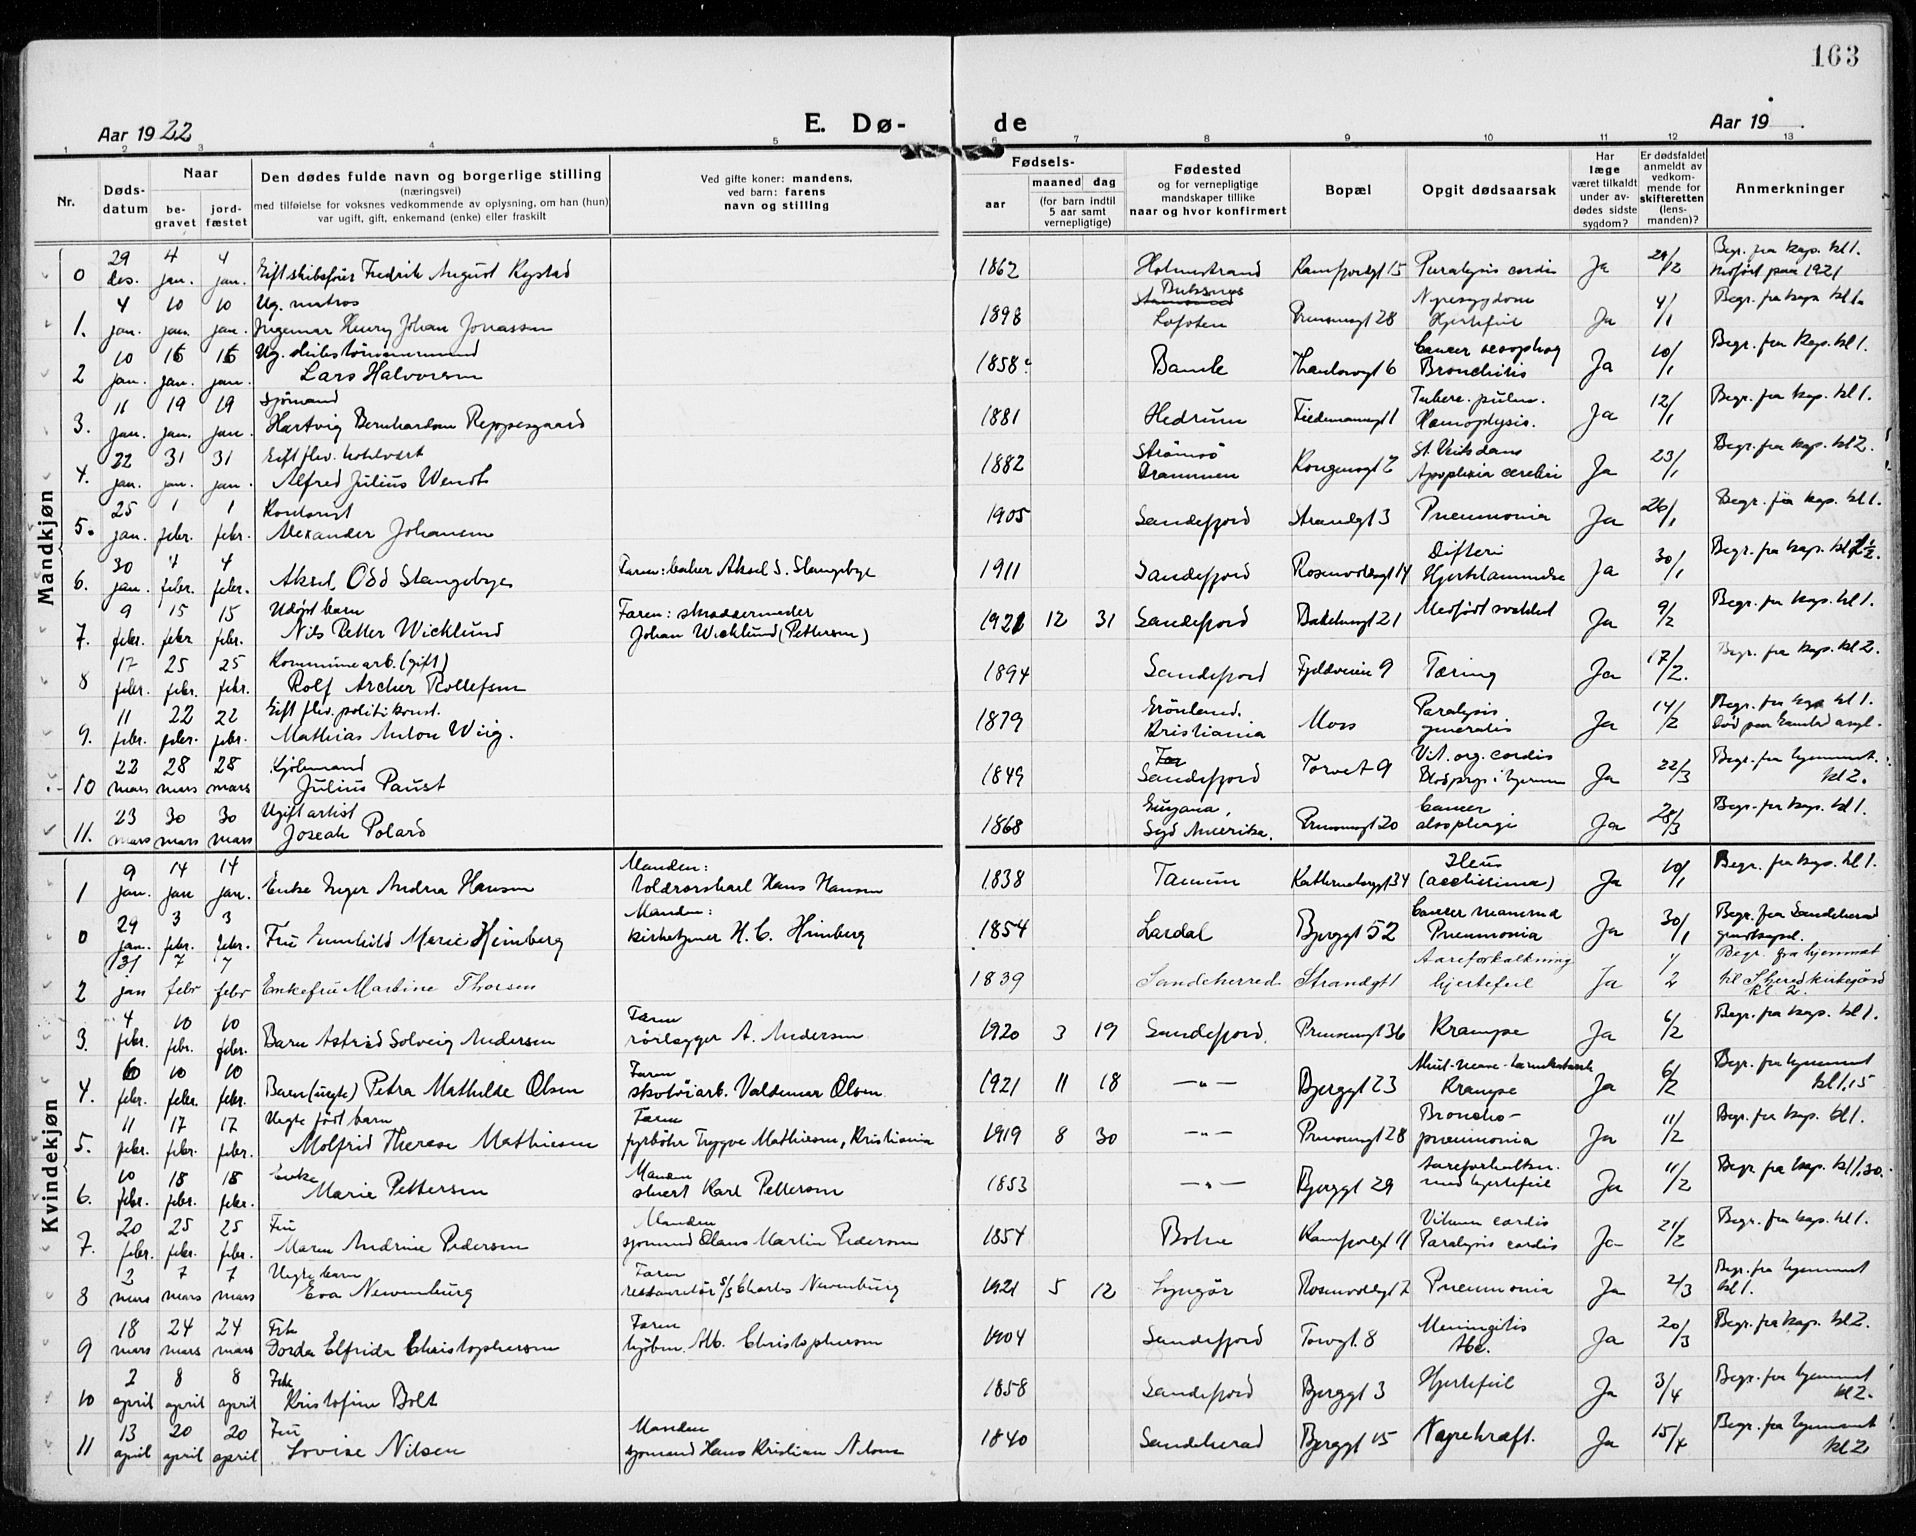 163
Aar 1922
E. Dø- de
Aar 19
1 2 3 4 5 6 7 8 9 10 11 12 13
Nr.
Døds-datum
Naar
be-gravet
jord-fæstet
Den dødes fulde navn og borgerlige stilling
(næringsvei)
med tilføielse for voksnes vedkommende av oplysning, om han (hun)
var ugift, gift, enkemand (enke) eller fraskilt
Ved gifte koner: mandens,
ved barn: farens
navn og stilling
Fødsels-
aar
maaned dag
(for barn indtil
5 aar samt
vernepligtige)
Fødested
og for vernepligtige
mandskaper tillike
naar og hvor konfirmert
Bopæl
Opgit dødsaarsak
Har
læge
været tilkaldt
under av-
dødes sidste
sygdom?
Er dødsfaldet
anmeldt av
vedkom-
mende for
skifteretten
(lens-
manden)?
Anmerkninger
Mandkjøn
0 29 des. 4 jan. 4 jan. Gift skibsfører Fredrik August Rystad 1862 Holmestrand Kamfjordgt 15 Paralysis cordis Ja 29/12 Begr. fra kap. kl 1. Indført paa 1921
1. 4 jan. 10 jan. 10 jan. Ug. matros Ingemar Henry Johan Jonassen 1898 Buksnes Lofoten Prinsensgt 28 Nyresygdom Hjertefeil Ja 4/1 Begr. fra kap. kl 1.
2 10 jan. 16 jan. 16 jan. Ug. skibstømmermand Lars Halvorsen 1858 Bamle Thaulowsgt 6 Cancer oesophag Bronchitis Ja 10/1 Begr. fra kap. kl 1.
3. 11 jan. 19 jan. 19 jan. Sjømand Hartvig Bernhardsen Reppesgaard 1881 Hedrum Tidemansgt 1 Tuberc. pulm. Hæmoptysis. Ja 12/1 Begr. fra kap. kl 1.
4. 22 jan. 31 jan. 31 jan. Gift fhv. hotelvært Alfred Julius Wendt 1882 Strømsø Drammen Kongensgt 2 St. Veits dans Apoplexia cerebri Ja 23/1 Begr. fra kap. kl 2.
5. 25 jan. 1 febr. 1 febr. Kontorist Alexander Johansen 1905 Sandefjord Strandgt 3 Pneumonia Ja 26/1 Begr. fra kap. kl 1.
6. 30 jan. 4 febr. 4 febr. Aksel Odd Stangebye Faren: baker Aksel S. Stangebye 1911 Sandefjord Rosenvoldsgt 14 Difteri Hjertelammelse Ja 30/1 Begr. fra kap. kl
7. 9 febr. 15 febr 15 febr. Udøpt barn Nils Petter Wicklund Faren: skræddermester Johan Wicklund (Pettersen) 1921 12 31 Sandefjord 21 Medfødt svakhet Ja 9/2 Begr. fra kap. kl 1.
8 17 febr. 25 febr. 25 febr. Kommunearb. (gift) Rolf Archer Rollefsen 1894 Sandefjord Fjeldveien 9 Tæring Ja 17/2. Begr. fra kap. kl 2.
9. 11 febr. 22 febr. 22 febr. Gift fhv. politikonst. Mathias Anton Wiig. 1879 Grønland. Kristiania Moss Paralysis generalis Ja 14/2 Begr. fra kap. kl 1. Død paa asyl.
10 22 mars 28 mars 28 mars Kjøbmand Julius Paust 1849 Sandefjord Torvet 9 Vit. org. cordis Blodprop i hjernen Ja 22/3 Begr. fra hjemmet. kl 2.
11. 23 mars 30 mars 30 mars Ugift artist Joseph Polard 1868 Guyana, Syd Amerika. Prinsensgt 20 Cancer Ja 28/3 Begr. fra kap. kl 1.
Kvindekjøn
1 9 jan. 14 jan 14 jan. Enke Inger Andrea Hansen Manden: Hans Hansen 1838 Tanum Kathrinebergt 34 Ileus Ja 10/1 Begr. fra kap. kl 1.
0 29 jan. 3 febr. 3 febr. Fru Gunhild Marie Heimberg Manden: kirketjener H. C. Heimberg 1854 Lardal Bjerggt 52 Cancer mamma Pneumonia Ja 30/1 Begr. fra Sandeherad gravkapel.
2 (31 jan 7 febr 7 febr Enkefru Martine Thorsen 1839 Sandeherred Strandgt 1 Aareforkalkning hjertefeil Ja 1/2 Begr. fra hjemmet til S.herred kirkegård kl 2.
3. 4 febr. 10 febr. 10 febr. Barn Astrid Solveig Andersen Faren rørlægger A. Andersen 1920 3 19 Sandefjord. Prinsensgt 36 Krampe Ja 6/2 Begr. fra kap. kl 1.
4. 6 febr. 10 febr. 10 febr. Barn (uegte) Petra Mathilde Olsen Faren skotøiarb. Valdemar Olsen 1921 11 18 —"— Bjerggt 23 Krampe Ja 6/2 Begr. fra hjemmet kl 1.15
5. 11 febr. 17 febr. 17 febr. Uegte født barn Molfrid Therese Mathiesen Faren fyrbøter Trygve Mathiesen, Kristiania 1919 8 30 —"— Prinsensgt 28 Broncho-pneumonia Ja 11/2 Begr. fra kap. kl 1.
6. 10 febr. 18 febr. 18 febr. Enke Marie Pettersen Manden stuert Karl Pettersen 1853 —"— Bjerggt 29 Aareforkalkn. med hjertefeil Ja 11/2 Begr. fra kap. kl 1.30.
7. 20 febr. 25 febr. 25 febr. Fru Maren Andrine Pedersen Manden sjømand Olaus Martin Pedersen 1854 Botne Kamfjordgt 11 Vitium cordis Paralysis cordis Ja 21/2 Begr. fra kap. kl 1.
8 2 mars 7 mars 7 mars Uegte barn Eva Newenburg Faren restauratør s/s Charles Newenburg 1921 5 12 Lyngør Rosenvoldsgt 2 Pneumonia Ja 2/3 Begr. fra hjemmet kl 1.
9 18 mars 24 mars 24 mars Frk Dordi Elfrida Christophersen Faren kjøbm. Alb. Christophersen 1904 Sandefjord Torvgt. 8 Meningitis tbc. Ja 20/3 Begr. fra kap. kl 2.
10 2 april 8 april 8 april Frk Kristofine Bolt 1858 Sandefjord Bjerggt 3 Hjertefeil Ja 3/4 Begr. fra hjemmet kl 2.
11 13 april 20 april 20 april Fru Lovise Nilsen Manden sjømand Hans Kristian Nilsen 1840 Sandeherad Bjerggt 15 Mavekræft. Ja 15/4 Begr. fra hjemmet kl 2